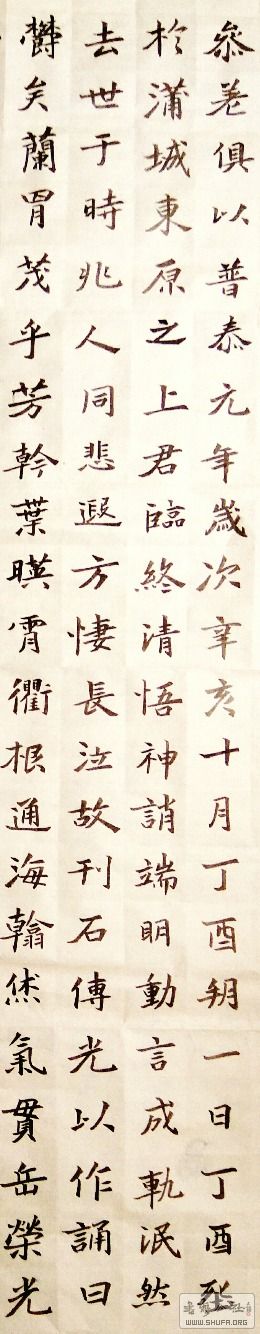 叅差俱以普泰元年歲次辛亥十月丁酉朔一日丁酉葬
於蒲城東原之上君臨終清悟神誚端明動言成軌泯然
去世于時兆人同悲遐方悽長泣故刊石傳光以作誦曰
鬱矣蘭胄茂乎芳幹葉暎霄衢根通海翰烋氣貫岳榮光
WWW.SHUFA.ORG